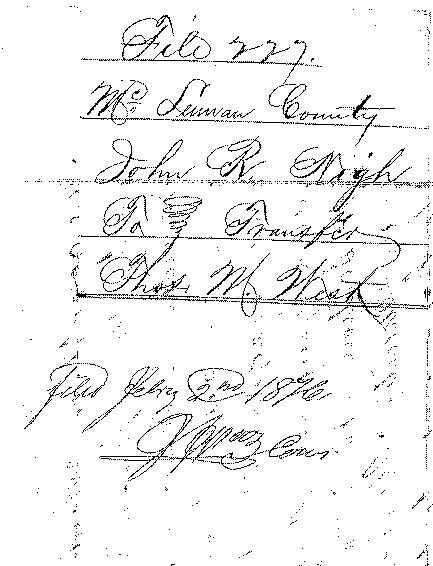 File 227.
McLennan County
John R. Nigh
To Transfer
Thos. M. West
Filed Feby 2nd 1876
Com